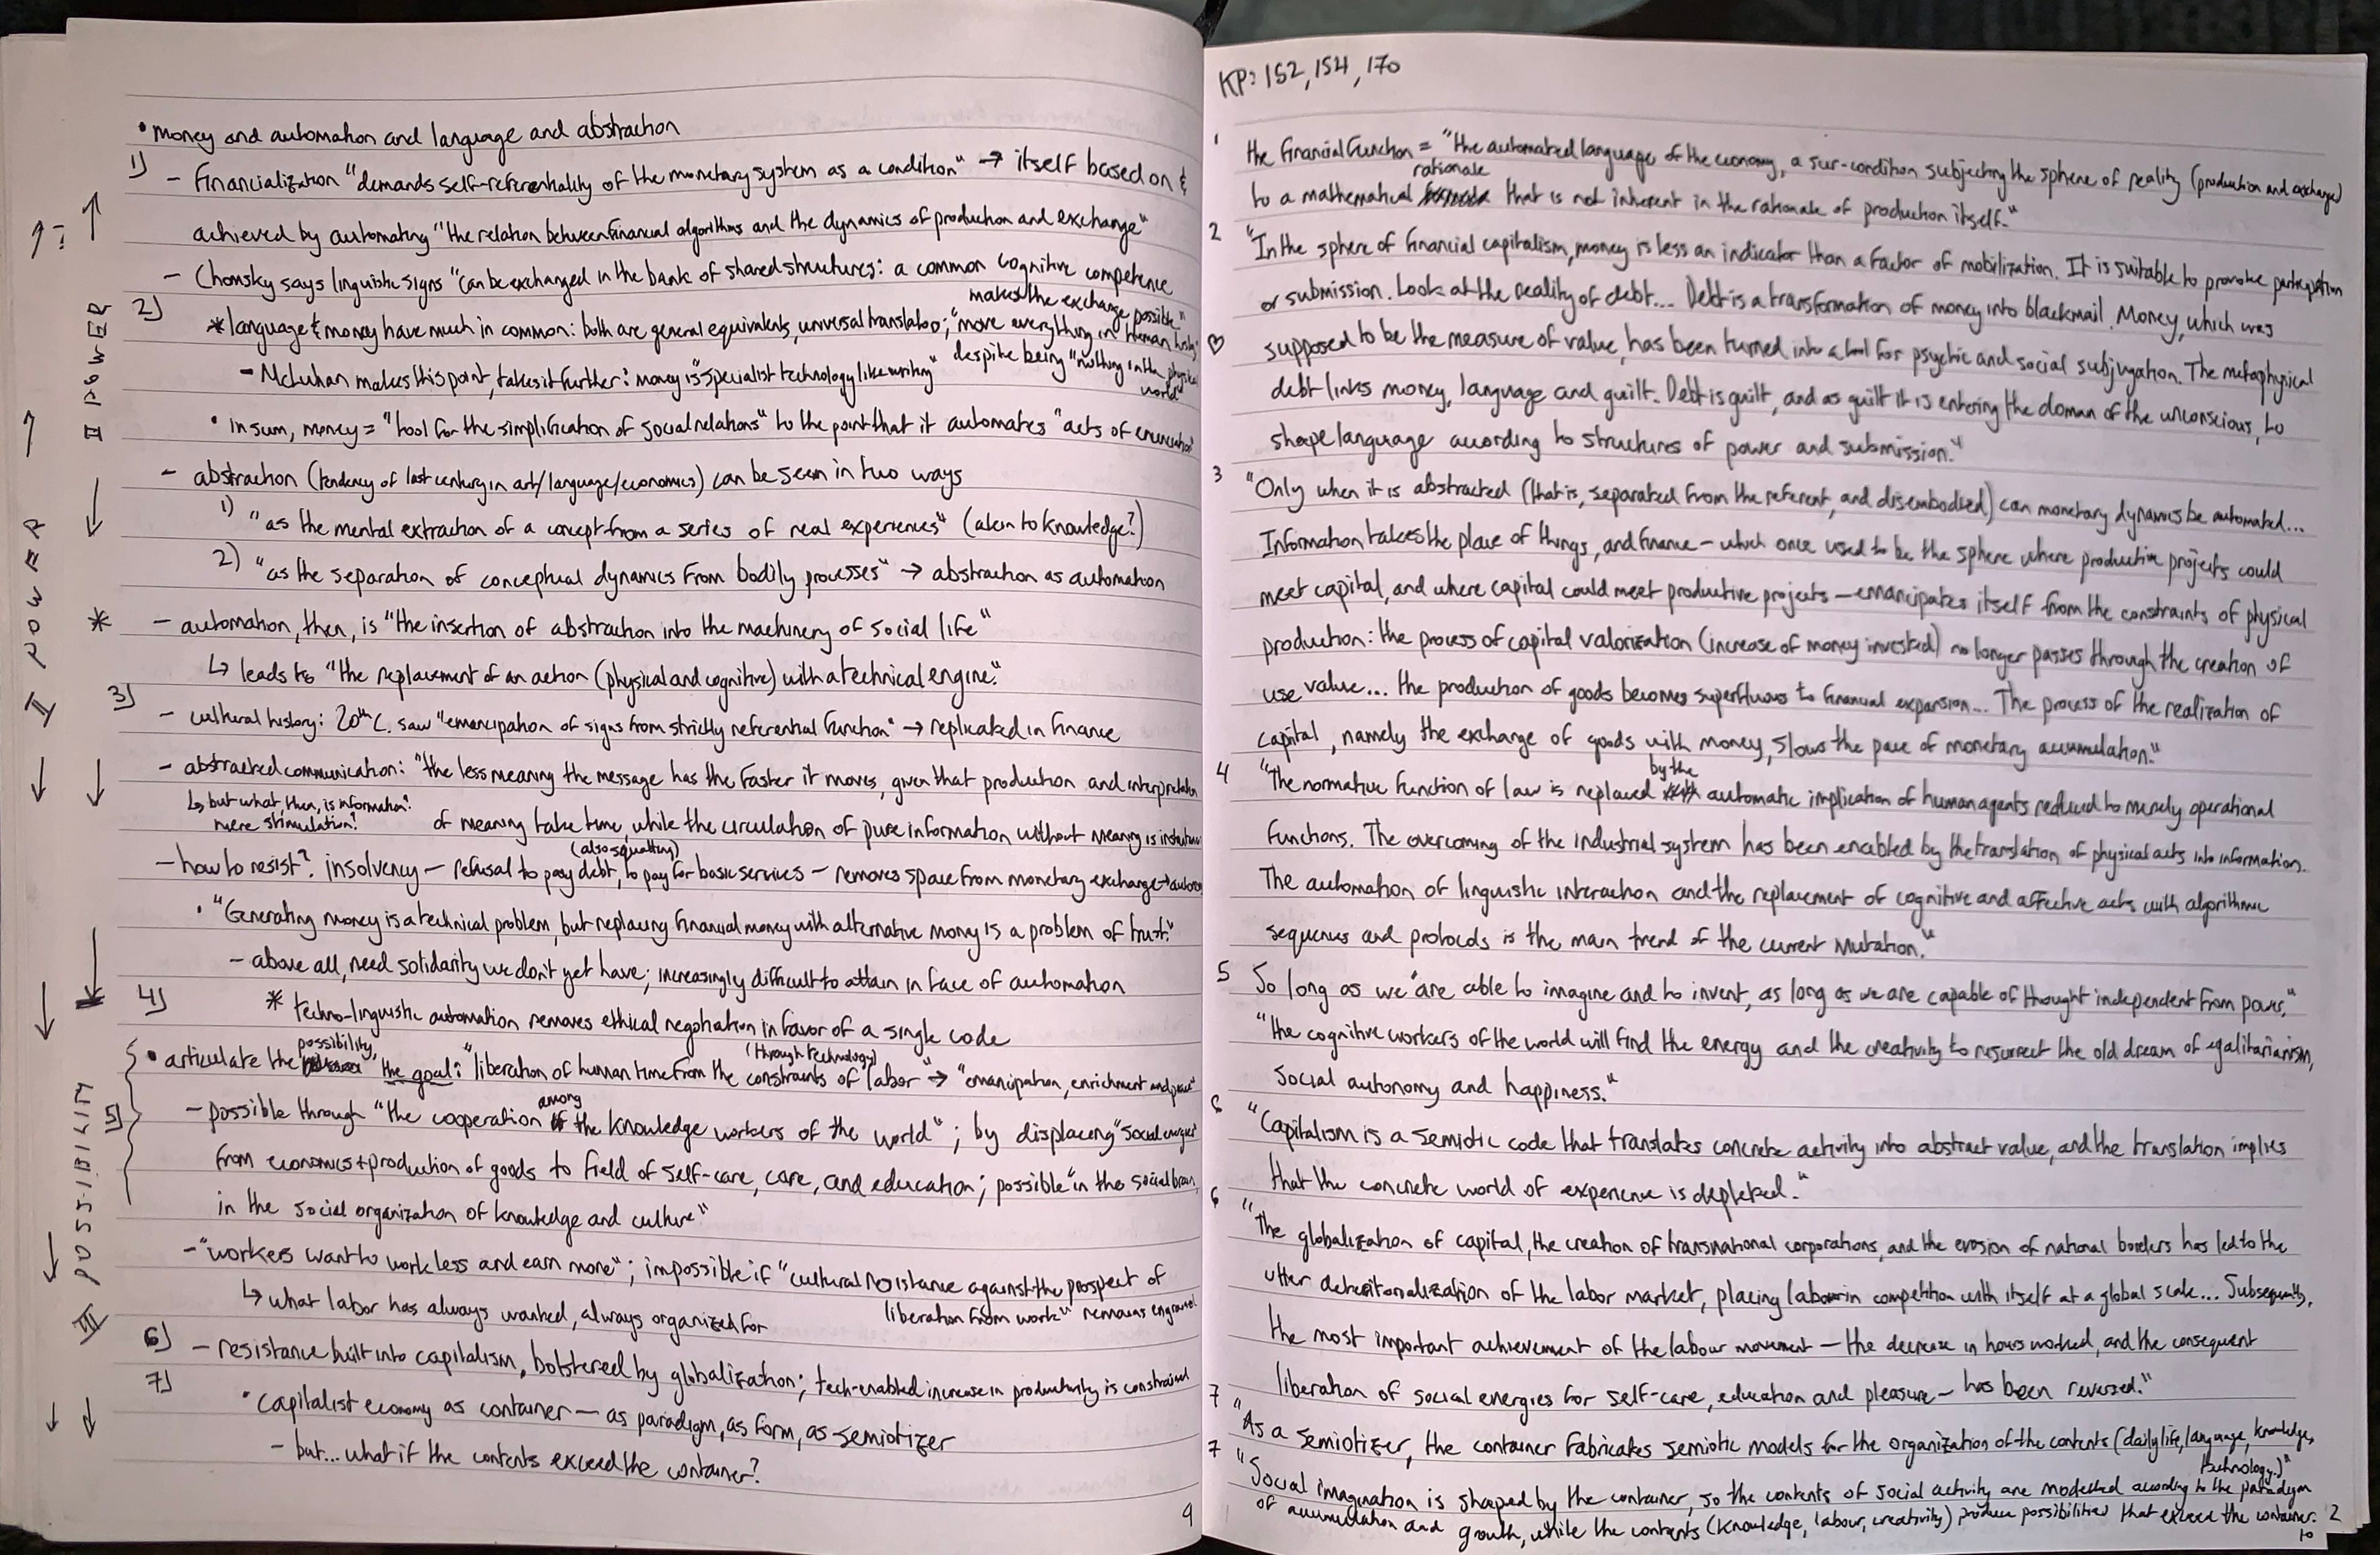 • money and automation and language and abstraction
1)
- Financialization "demands self-referentiality of the monetary system as a condition" → itself based on &
achieved by automating "the relation between financial algorithms and the dynamics of production and exchange"
- Chomsky says linguistic signs "can be exchanged in the bank of shared structures: a common cognitive competence
makes the exchange possible"
2)
* language & money have much in common: both are general equivalents, universal translators; "move everything in human history"
despite being "nothing in the physical world"
- McLuhan makes this point, takes it further: money is "specialist technology like writing"
• in sum, money = "tool for the simplification of social relations" to the point that it automates "acts of enunciation"
- abstraction (tendency of last century in art/language/economics) can be seen in two ways
1) "as the mental extraction of a concept from a series of real experiences" (akin to knowledge?)
2) "as the separation of conceptual dynamics from bodily processes" → abstraction as automation
* - automation, then, is "the insertion of abstraction into the machinery of social life"
↳ leads to "the replacement of an action (physical and cognitive) with a technical engine."
3)
- cultural history: 20th C. saw "emancipation of signs from strictly referential function" → replicated in finance
- abstracted communication: "the less meaning the message has the faster it moves, given that production and interpretation
↳ but what, then, is information?
mere stimulation?
of meaning take time, while the circulation of pure information without meaning is instantaneous
- how to resist? insolvency — refusal to pay debt, to pay for basic services — removes space from monetary exchange →
(also squatting)
• "Generating money is a technical problem, but replacing financial money with alternative money is a problem of trust."
- above all, need solidarity we don't yet have; increasingly difficult to attain in face of automation
4)
* techno-linguistic automation removes ethical negotiation in favor of a single code
5)
• articulate the possibility, the goal: "liberation of human time from the constraints of labor (through technology)" → "emancipation, enrichment and peace"
- possible through "the cooperation among the knowledge workers of the world"; by displacing "social energies"
from economics + production of goods to field of self-care, care, and education; possible "in the social brain,
in the social organization of knowledge and culture"
- "workers want to work less and earn more"; impossible if "cultural resistance against the prospect of
liberation from work" remains engrained
↳ what labor has always wanted, always organized for
6)
- resistance built into capitalism, bolstered by globalization; tech-enabled increase in productivity is constrained
7)
• capitalist economy as container — as paradigm, as form, as semiotizer
- but... what if the contents exceed the container?
9
II POWER
II POWER
III POSSIBILITY
KP: 152, 154, 170
1 the financial function = "the automated language of the economy, a sur-condition subjecting the sphere of reality (production and exchange)
to a mathematical rationale that is not inherent in the rationale of production itself."
2 "In the sphere of financial capitalism, money is less an indicator than a factor of mobilization. It is suitable to provoke participation
or submission. Look at the reality of debt... Debt is a transformation of money into blackmail. Money, which was
♡ supposed to be the measure of value, has been turned into a tool for psychic and social subjugation. The metaphysical
debt links money, language and guilt. Debt is guilt, and as guilt it is entering the domain of the unconscious, to
shape language according to structures of power and submission."
3 "Only when it is abstracted (that is, separated from the referent, and disembodied) can monetary dynamics be automated...
Information takes the place of things, and finance - which once used to be the sphere where productive projects could
meet capital, and where capital could meet productive projects — emancipates itself from the constraints of physical
production: the process of capital valorization (increase of money invested) no longer passes through the creation of
use value... the production of goods becomes superfluous to financial expansion... The process of the realization of
capital, namely the exchange of goods with money, slows the pace of monetary accumulation."
4 "The normative function of law is replaced by the automatic implication of human agents reduced to merely operational
functions. The overcoming of the industrial system has been enabled by the translation of physical acts into information.
The automation of linguistic interaction and the replacement of cognitive and affective acts with algorithmic
sequences and protocols is the main trend of the current mutation."
5 So long as we "are able to imagine and to invent, as long as we are capable of thought independent from power,"
"the cognitive workers of the world will find the energy and the creativity to resurrect the old dream of egalitarianism,
social autonomy and happiness."
6 "Capitalism is a semiotic code that translates concrete activity into abstract value, and the translation implies
that the concrete world of experience is depleted."
6 "The globalization of capital, the creation of transnational corporations, and the erosion of national borders has led to the
utter deterritorialization of the labor market, placing labor in competition with itself at a global scale... Subsequently,
the most important achievement of the labour movement — the decrease in hours worked, and the consequent
liberation of social energies for self-care, education and pleasure — has been reversed."
7 "As a semiotizer, the container fabricates semiotic models for the organization of the contents (daily life, language, knowledge,
technology.)"
7 "Social imagination is shaped by the container, so the contents of social activity are modelled according to the paradigm
of accumulation and growth, while the contents (knowledge, labour, creativity) produce possibilities that exceed the container.
2
10